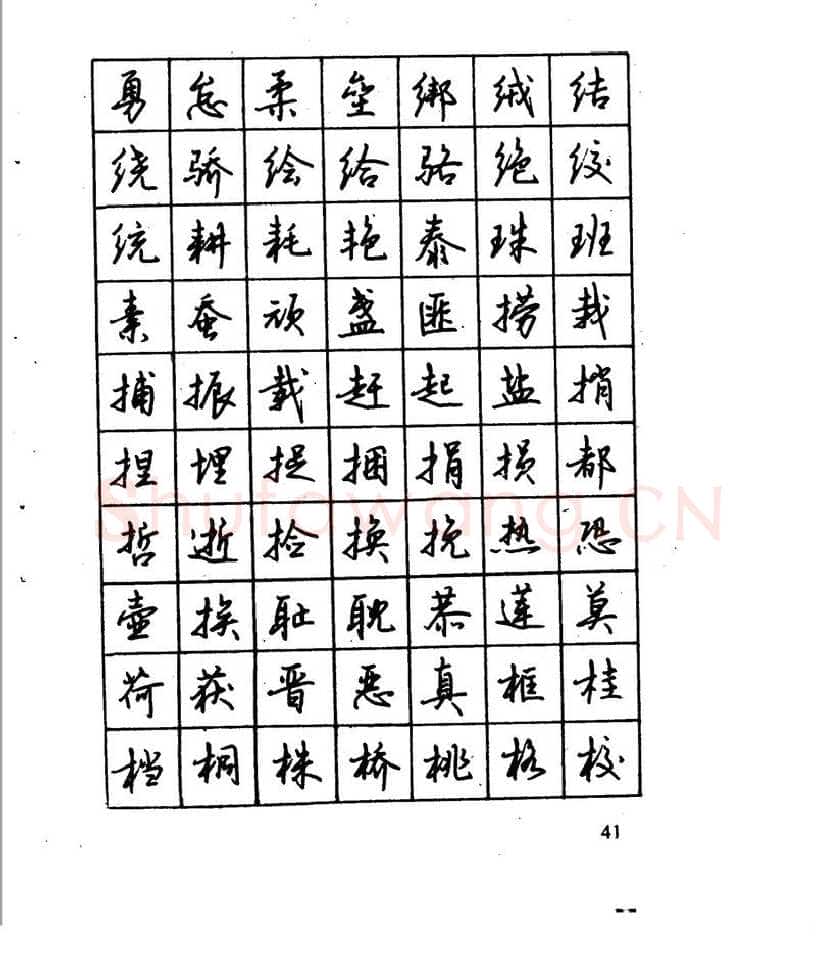 勇怠柔垒绑绒结
绕骄绘给骆绝绞
统耕耗艳泰珠班
素蚕顽盏匪捞栽
捕振载赶起盐捎
捏埋捉捆捐损都
哲逝捡换挽热恐
壶挨耻耽恭莲莫
荷获晋恶真框桂
档桐株桥桃格校
41
Shufawang.CN